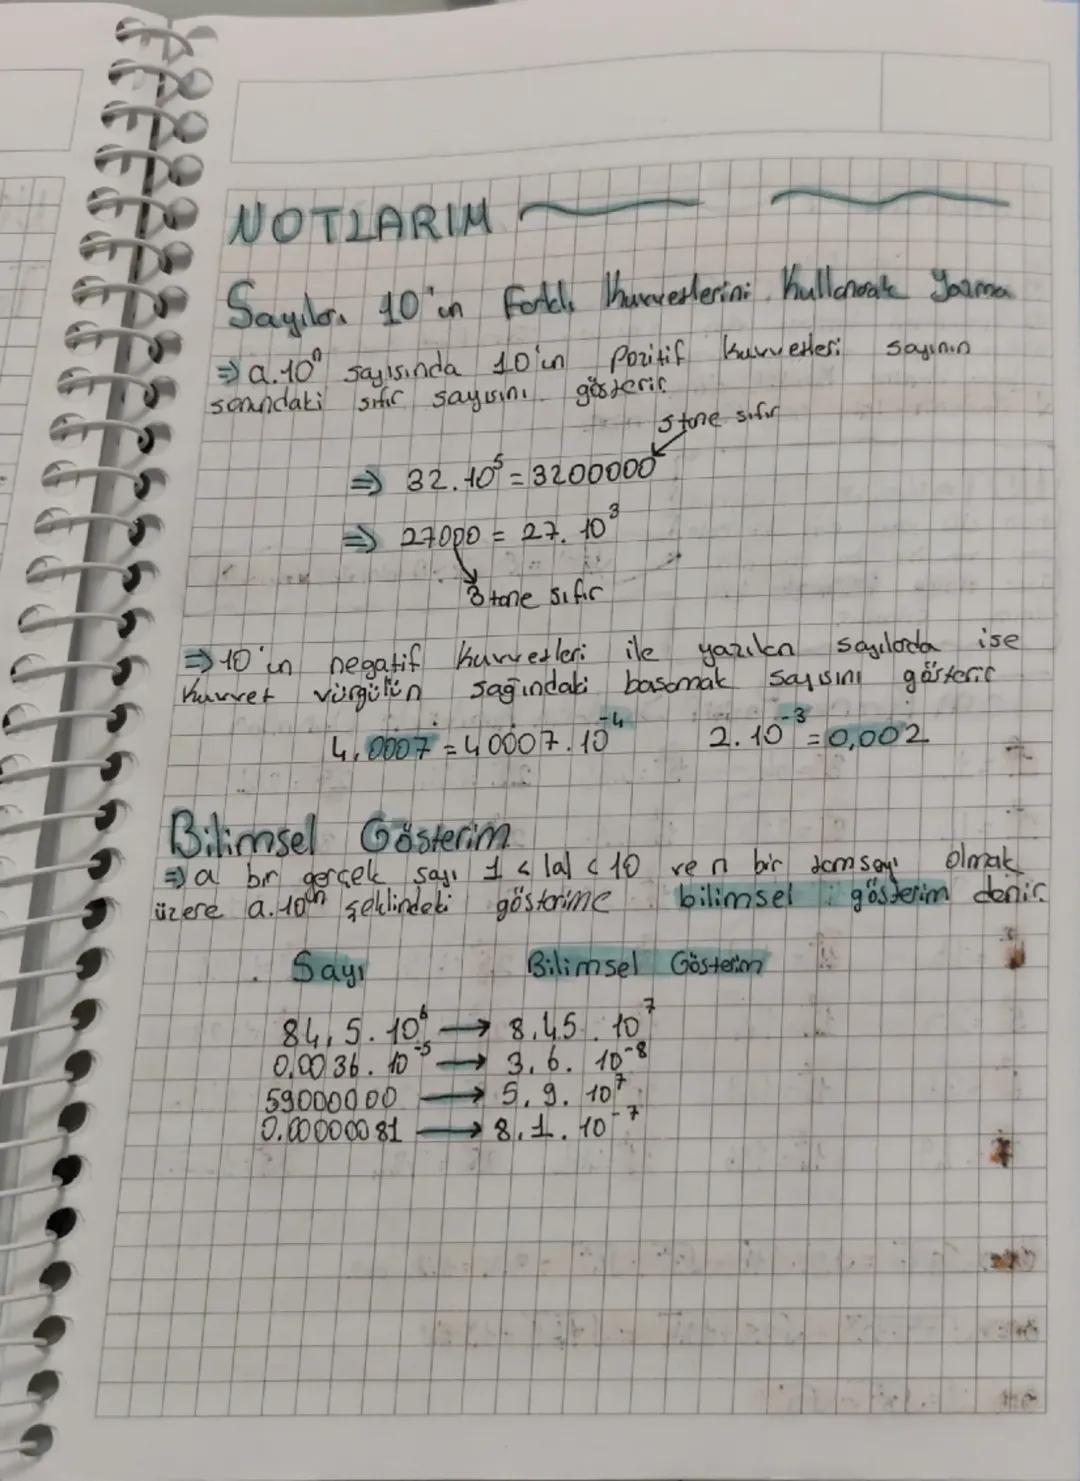 NOTLARIM
Sayıları 10'un Farklı Kuvvetlerini Kullanarak Yazma
⇒ a.10ⁿ sayısında 10'un Pozitif kuvvetleri sayının
sonundaki sıfır sayısını gösterir
5 tane sıfır
⇒ 32.10⁵ = 3200000
⇒ 27000 = 27.10³
3 tane sıfır
⇒ 10'un negatif kuvvetleri ile yazılan sayılarda ise
kuvvet vürgülün sağındaki basamak sayısını gösterir
4,0007 = 40007.10⁻⁴ 2.10⁻³ = 0,002
Bilimsel Gösterim
⇒ a bir gerçek sayı 1 < |a| < 10 ve n bir tamsayı olmak
üzere a.10ⁿ şeklindeki gösterime bilimsel gösterim denir.
Sayı Bilimsel Gösterim
84,5.10⁶ → 8,45.10⁷
0,0036.10⁻⁵ → 3,6.10⁻⁸
59000000 → 5,9.10⁷
0,00000081 → 8,1.10⁻⁷